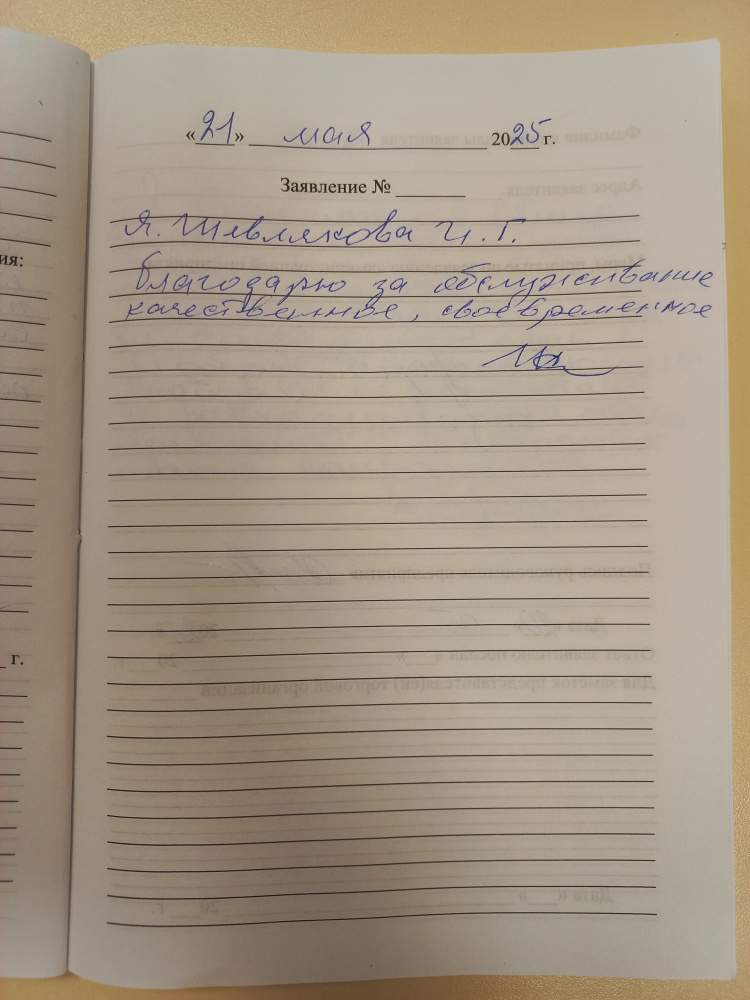 «21» мая 2025 г.
Заявление №
Я. Шевлякова И. Г.
благодарю за обслуживание
качественное, своевременное
ия:
г.